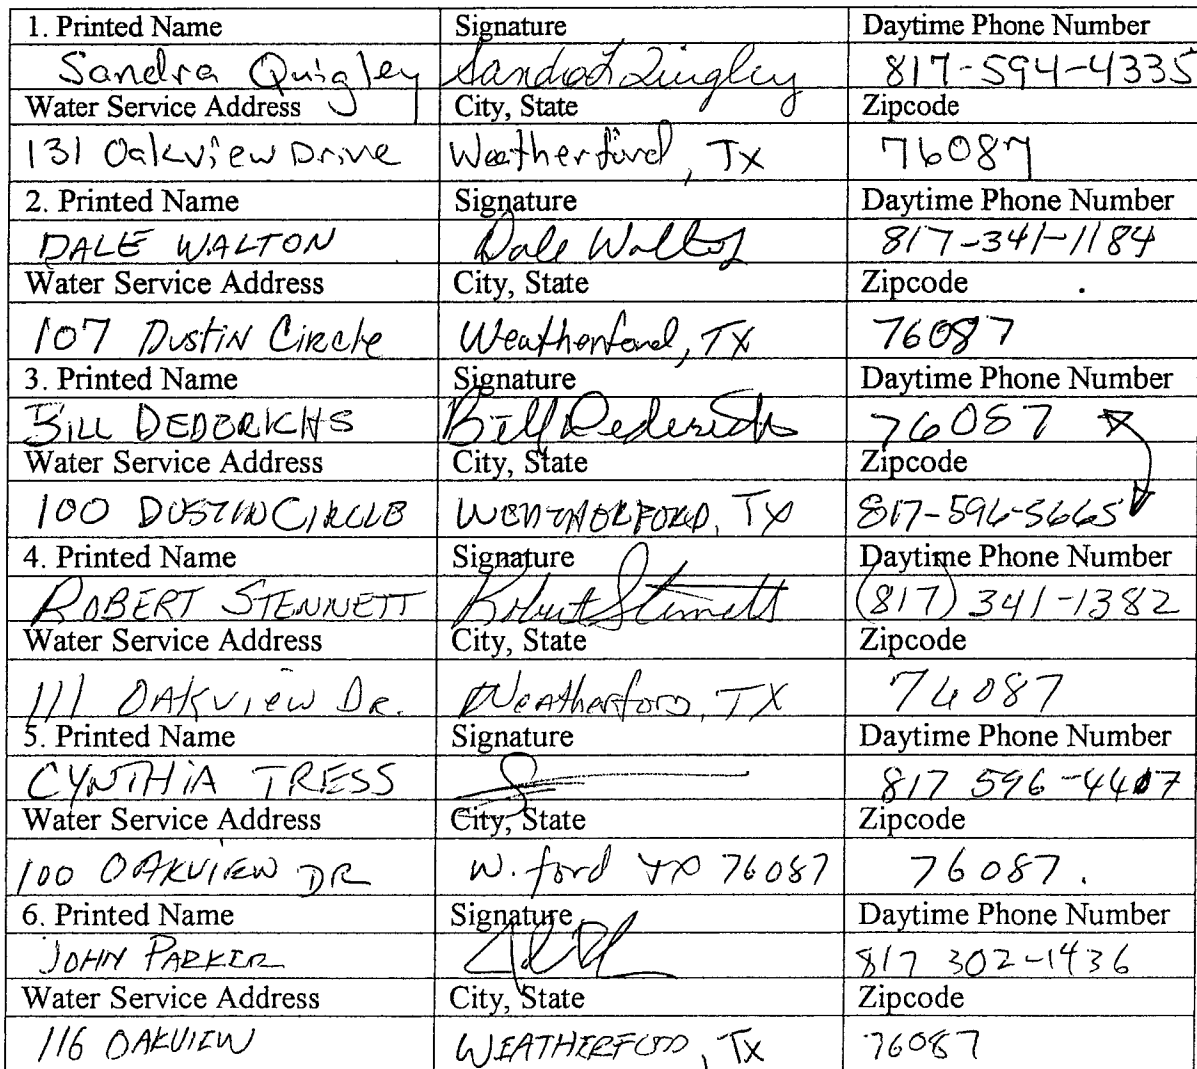 1. Printed Name Signature Daytime Phone Number
Sandra Quigley Sandra L Quigley 817-594-4335
Water Service Address City, State Zipcode
131 Oakview Drive Weatherford, Tx 76087
2. Printed Name Signature Daytime Phone Number
DALE WALTON Dale Walton 817-341-1184
Water Service Address City, State Zipcode
107 Dustin Circle Weatherford, TX 76087
3. Printed Name Signature Daytime Phone Number
BILL DEDERICHS Bill Dederichs 76087
Water Service Address City, State Zipcode
100 DUSTIN CIRCLE WEATHERFORD, TX 817-596-5665
4. Printed Name Signature Daytime Phone Number
ROBERT STENNETT Robert Stennett (817) 341-1382
Water Service Address City, State Zipcode
111 OAKVIEW DR. Weatherford, TX 76087
5. Printed Name Signature Daytime Phone Number
CYNTHIA TRESS 817 596-4407
Water Service Address City, State Zipcode
100 OAKVIEW DR W. ford TX 76087 76087.
6. Printed Name Signature Daytime Phone Number
JOHN PARKER 817 302-1436
Water Service Address City, State Zipcode
116 OAKVIEW WEATHERFORD, TX 76087